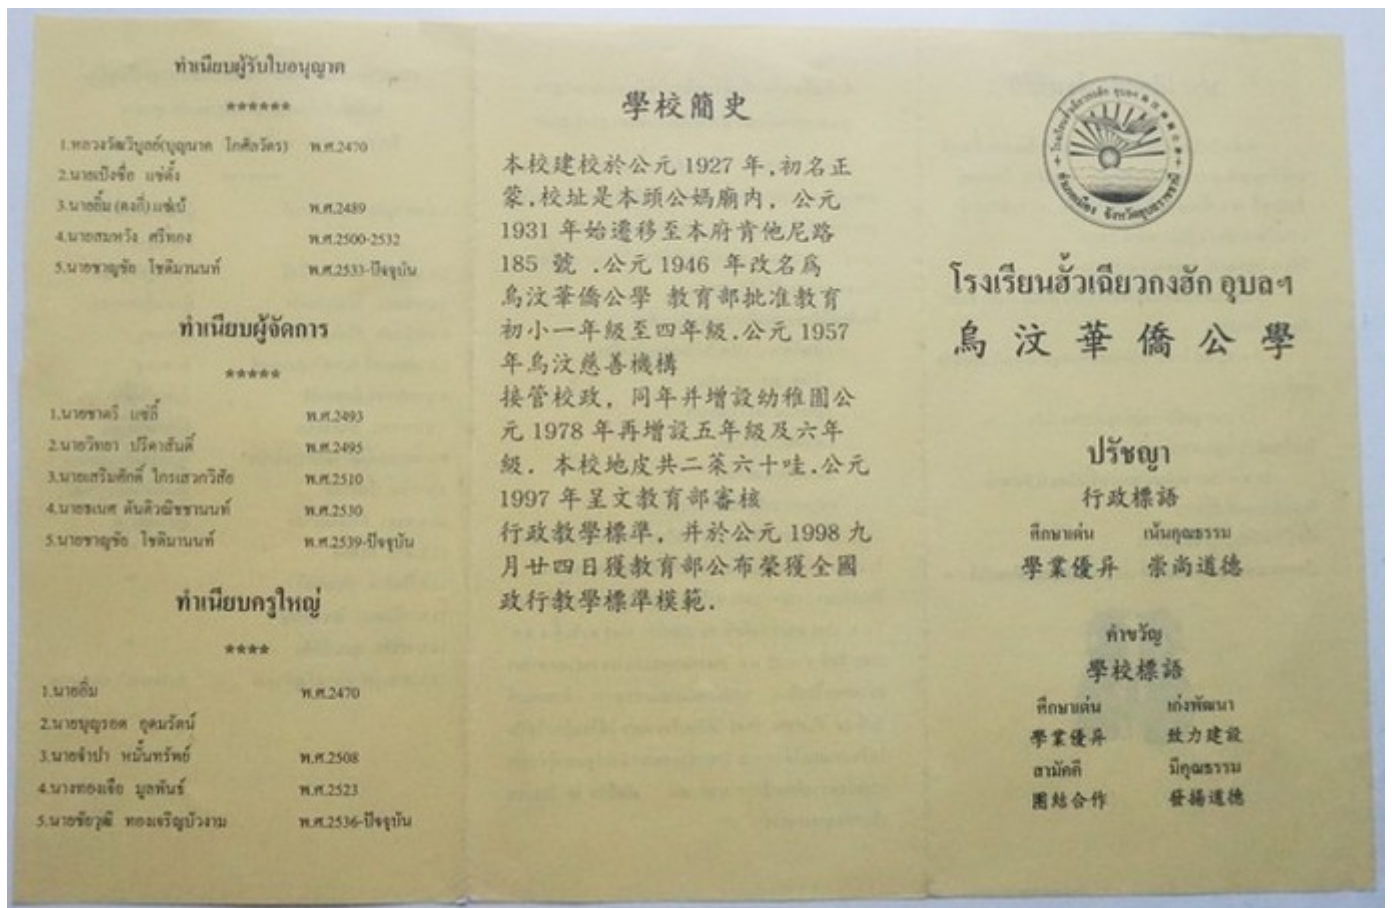 ทำเนียบผู้รับใบอนุญาต
******
1.หลวงวัฒวิบูลย์(บุญนาค โกศัลวัตร) พ.ศ.2470
2.นายเป็งซื่อ แซ่ตั้ง
3.นายยิ้ม(ตงกี่)แซ่เบ๊ พ.ศ.2489
4.นายสมหวัง ศรีทอง พ.ศ.2500-2532
5.นายชาญชัย โชติมานนท์ พ.ศ.2533-ปัจจุบัน
ทำเนียบผู้จัดการ
*****
1.นายชาตรี แซ่ลี้ พ.ศ.2493
2.นายวิทยา ปรีดาสันติ์ พ.ศ.2495
3.นายเสริมศักดิ์ ไกรเสวกวิสัย พ.ศ.2510
4.นายธเนศ ตันติวณิชชานนท์ พ.ศ.2530
5.นายชาญชัย โชติมานนท์ พ.ศ.2539-ปัจจุบัน
ทำเนียบครูใหญ่
****
1.นายยิ้ม พ.ศ.2470
2.นายบุญรอด อุดมรัตน์
3.นายจำปา หมั้นทรัพย์ พ.ศ.2508
4.นางทองเจือ มูลพันธ์ พ.ศ.2523
5.นายชัยวุฒิ ทองเจริญบัวงาม พ.ศ.2536-ปัจจุบัน
學校簡史
本校建校於公元 1927 年,初名正
蒙,校址是本頭公媽廟内, 公元
1931 年始遷移至本府肯他尼路
185 號 .公元 1946 年改名爲
烏汶華僑公學 教育部批准教育
初小一年級至四年級.公元 1957
年烏汶慈善機構
接管校政, 同年并增設幼稚園公
元 1978 年再增設五年級及六年
級. 本校地皮共二萊六十哇.公元
1997 年呈文教育部審核
行政教學標準, 并於公元 1998 九
月廿四日獲教育部公布榮獲全國
政行教學標準模範.
ตำบลในเมือง จังหวัดอุบลราชธานี
โรงเรียนฮั้วเฉียวกงฮัก อุบลฯ
烏汶華僑公學
ปรัชญา
行政標語
ศึกษาเด่น เน้นคุณธรรม
學業優异 崇尚道德
คำขวัญ
學校標語
ศึกษาเด่น เก่งพัฒนา
學業優异 致力建設
สามัคคี มีคุณธรรม
團結合作 發揚道德